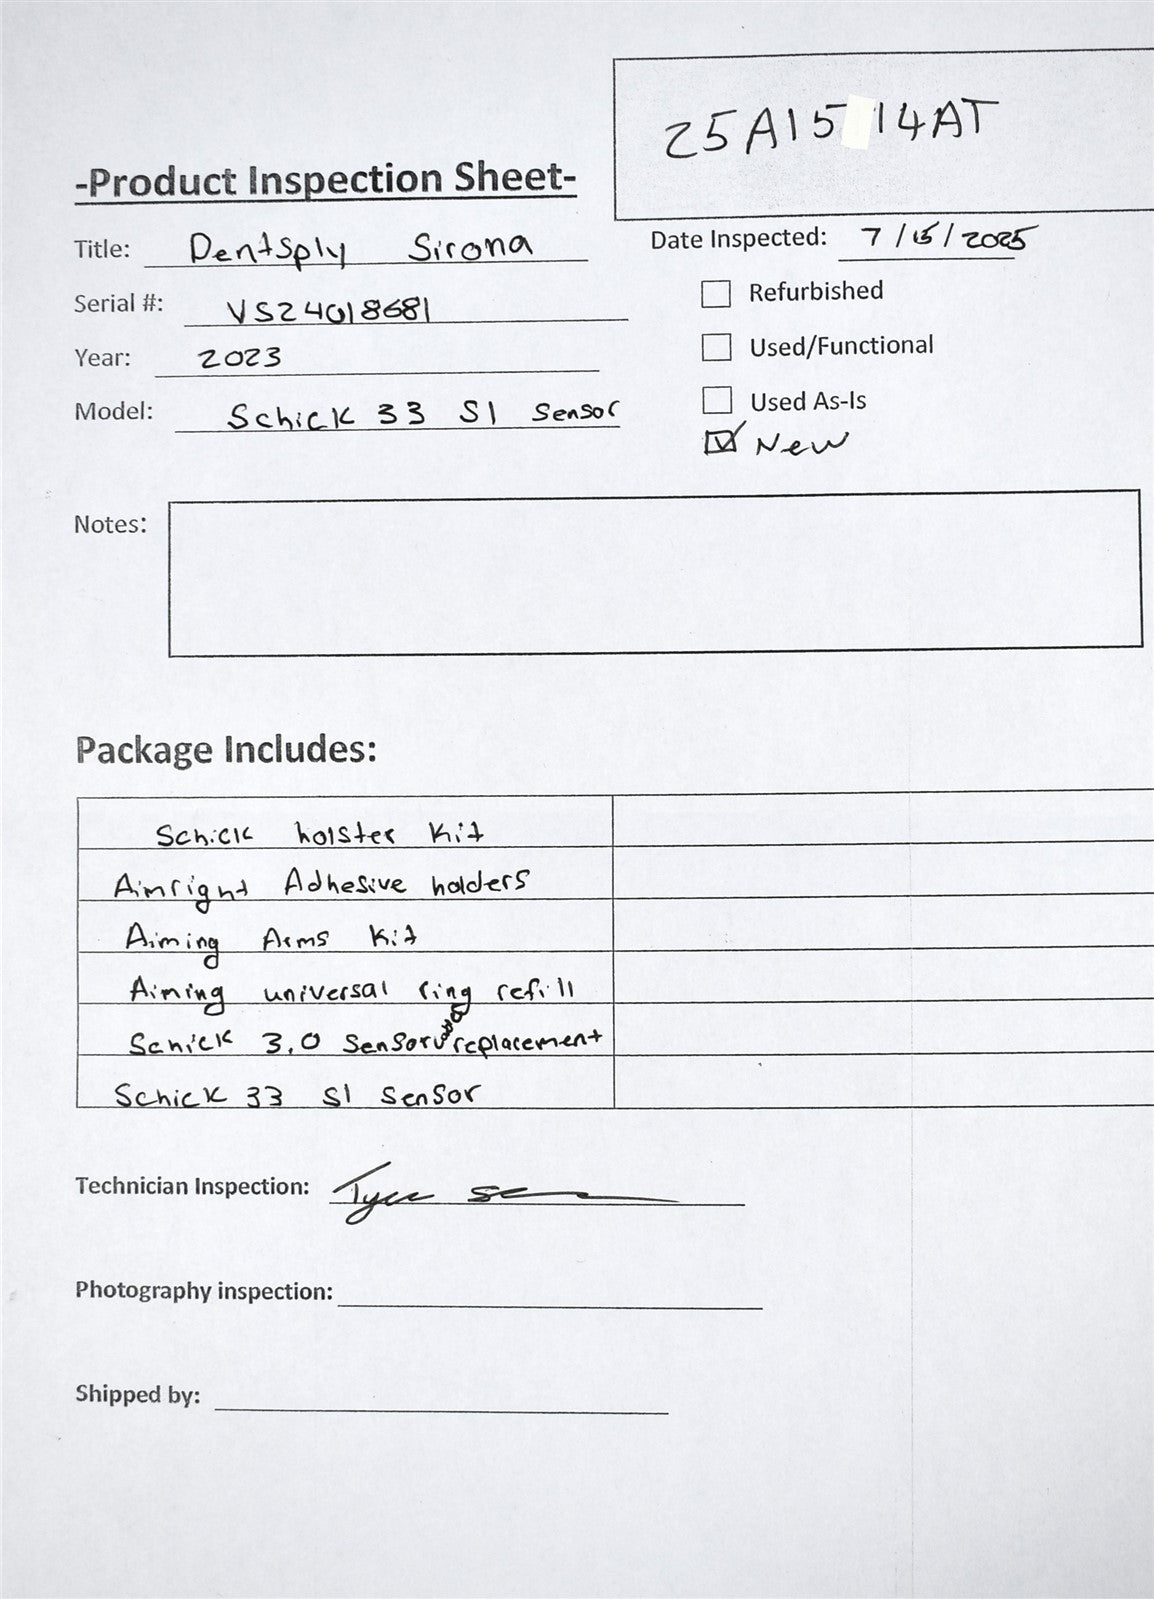 25A15 14AT
-Product Inspection Sheet-
Title: Dentsply Sirona
Date Inspected: 7/15/2025
Serial #: VS24018681
Refurbished
Year: 2023
Used/Functional
Model: Schick 33 S1 Sensor
Used As-Is
New
Notes:
Package Includes:
Schick holster Kit
Aimright Adhesive holders
Aiming Arms Kit
Aiming universal ring refill
Schick 3.0 Sensor replacement
Schick 33 S1 Sensor
Technician Inspection:
Photography inspection:
Shipped by: